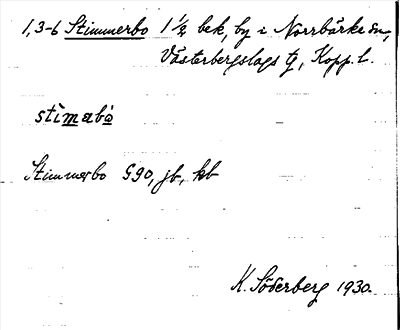 1,3-6 Stimmerbo 1 1/2 bek, by i Norrbärke sn,
Västerbergslags tg, Kopp. l.
stìmabò
Stimmerbo §90, jb, kb
K. Söderberg 1930.